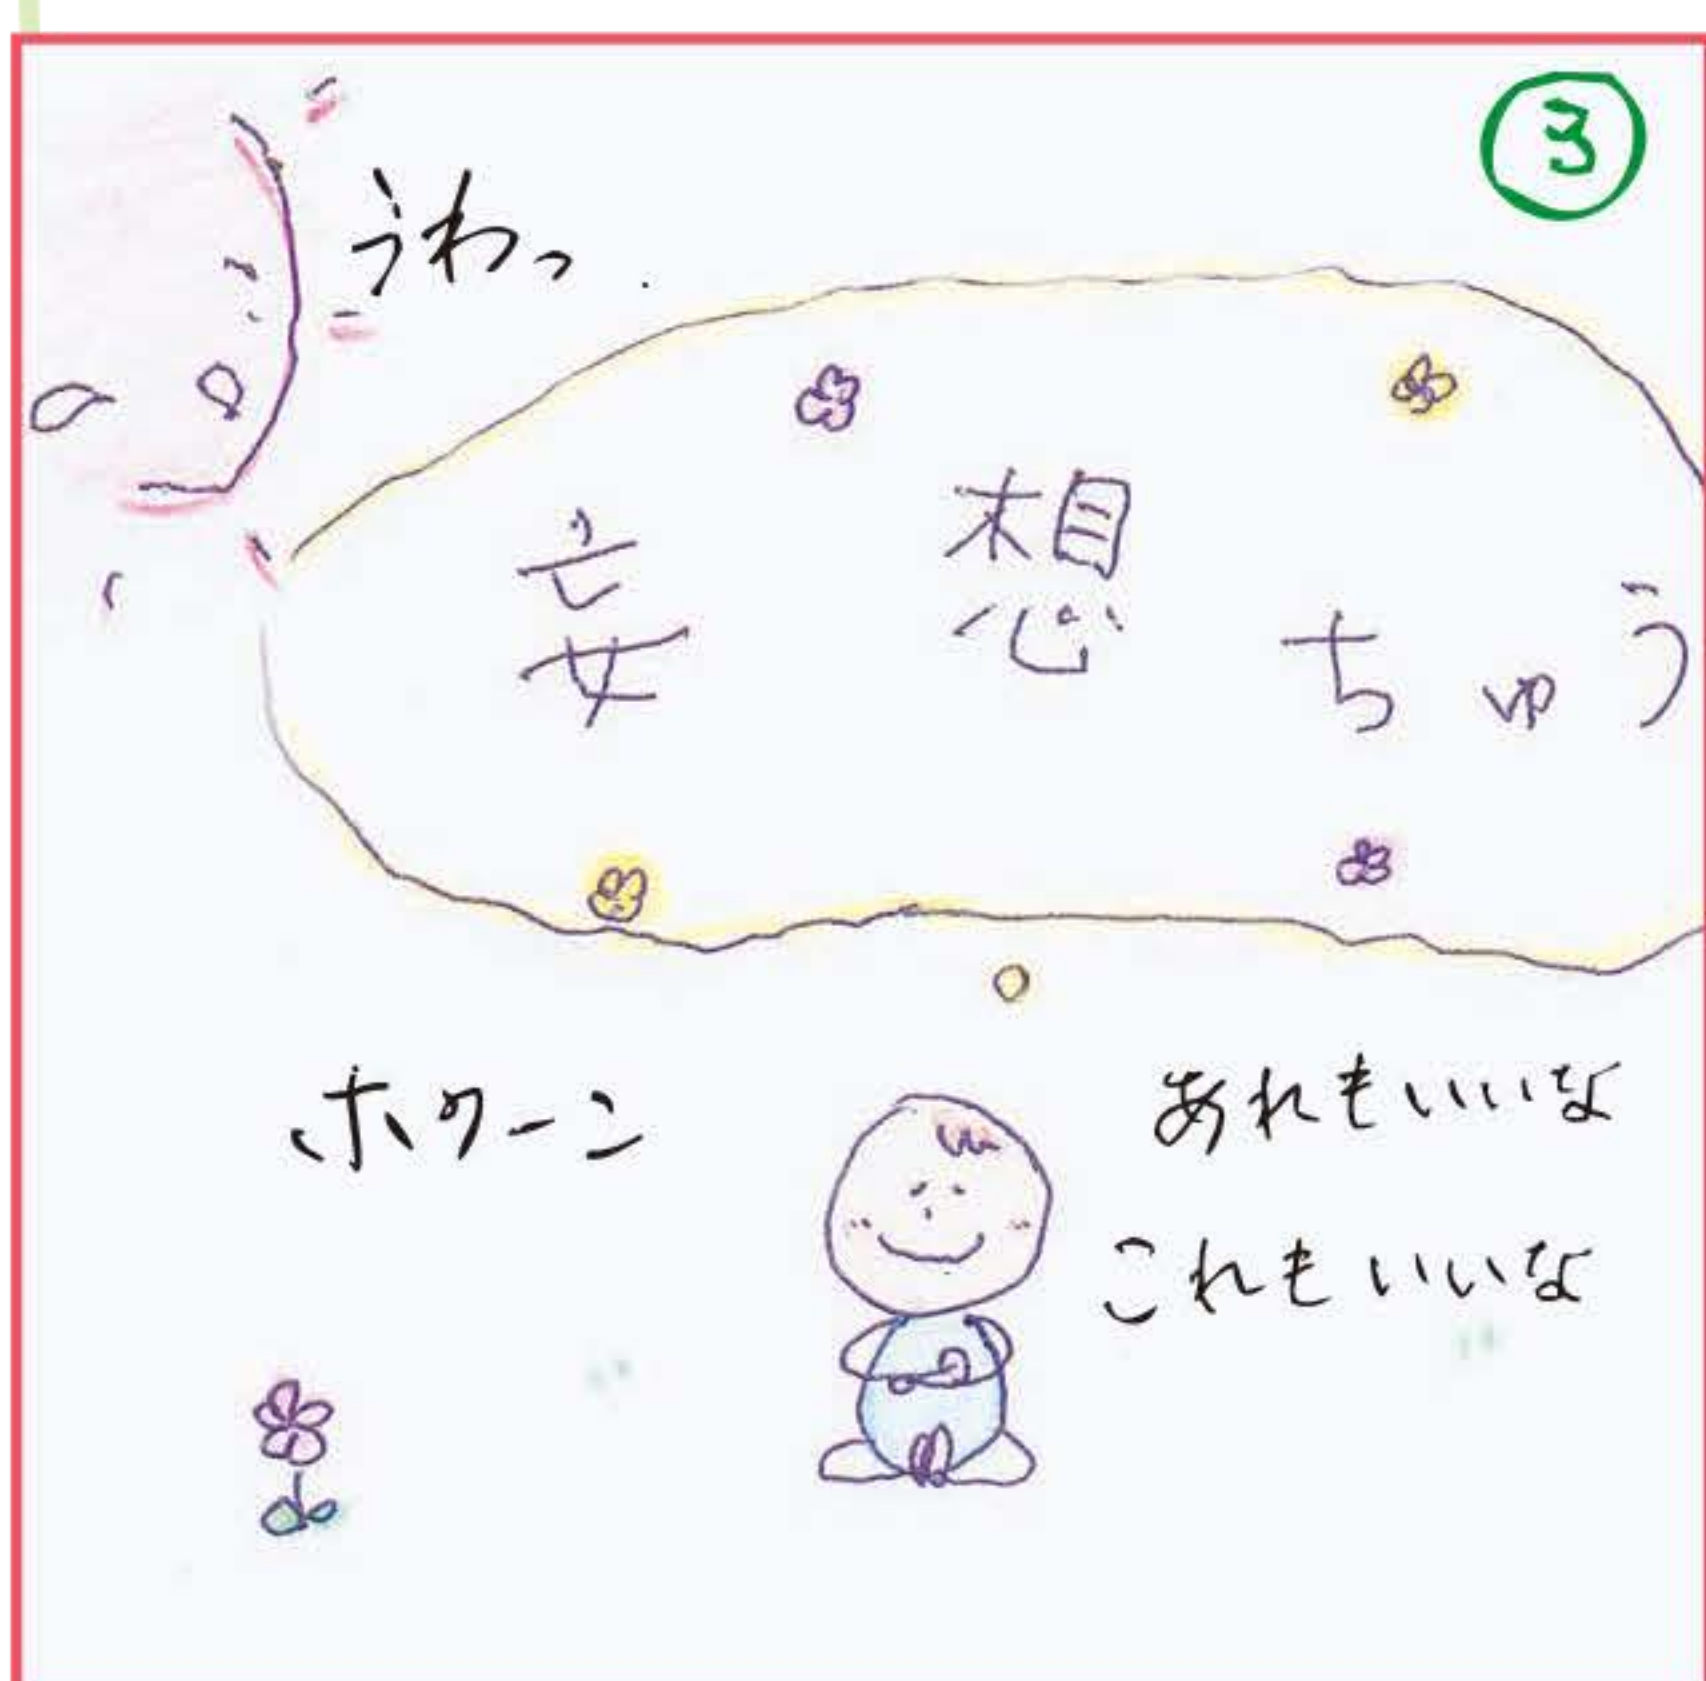 3
うわっ
妄想ちゅう
ホワーン
あれもいいな
これもいいな